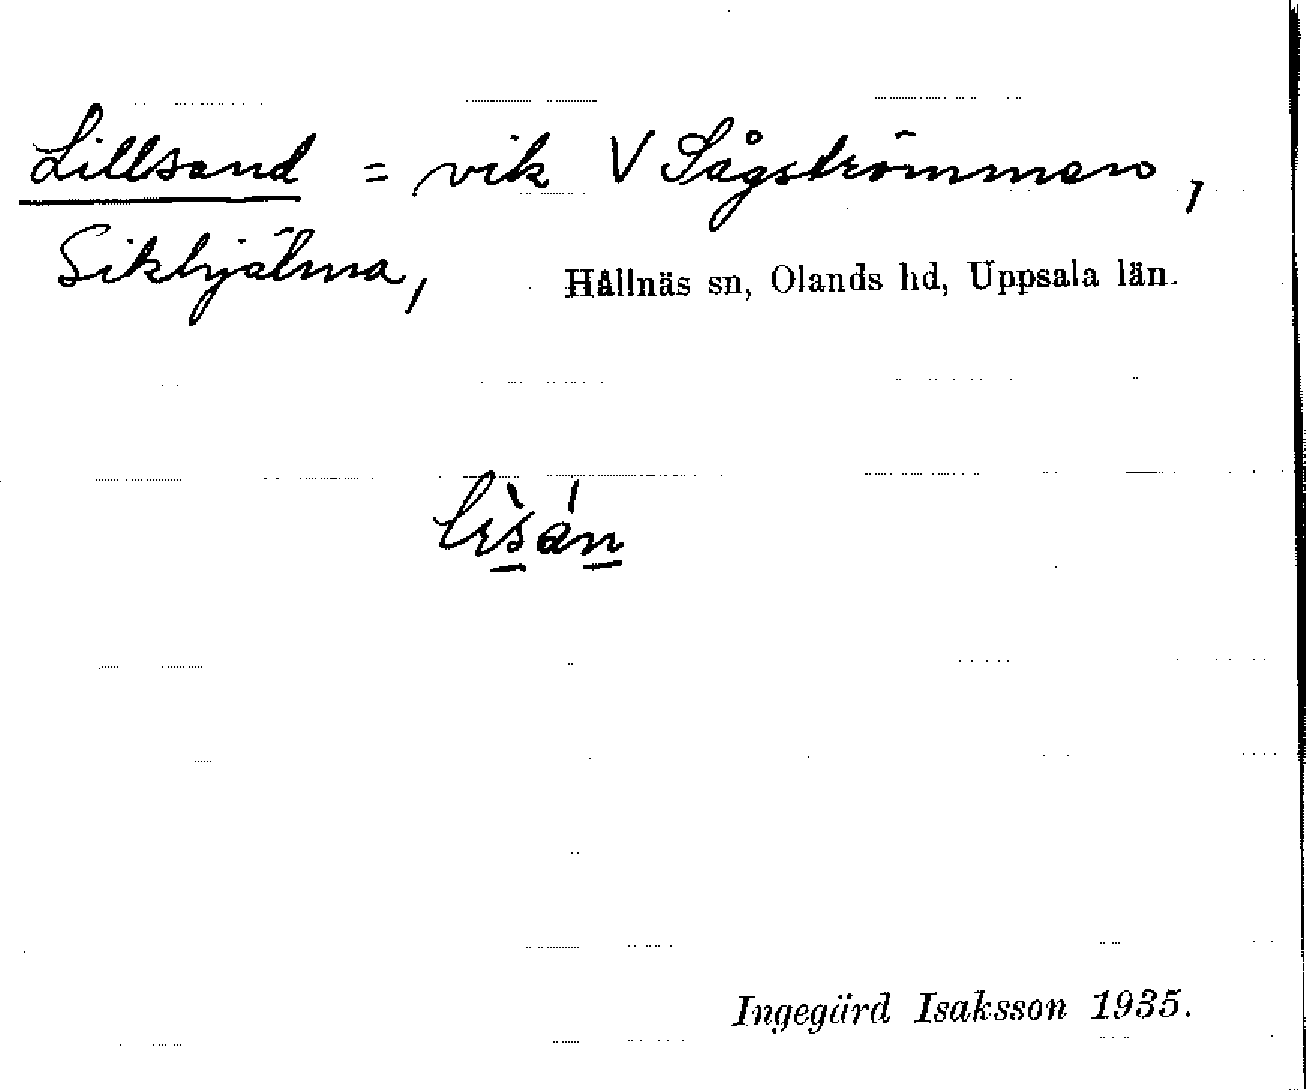 Lillsand = vik V Sågströmmen,
Sikhjälma, Hållnäs sn, Olands hd, Uppsala län.
Ingegärd Isaksson 1935.